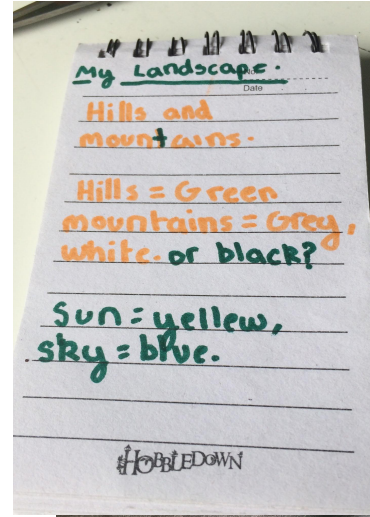 My Landscape.
Date
Hills and
mountains.
Hills = Green
mountains = Grey,
white. or black?
Sun = yellew,
sky = blue.
HOBBLEDOWN